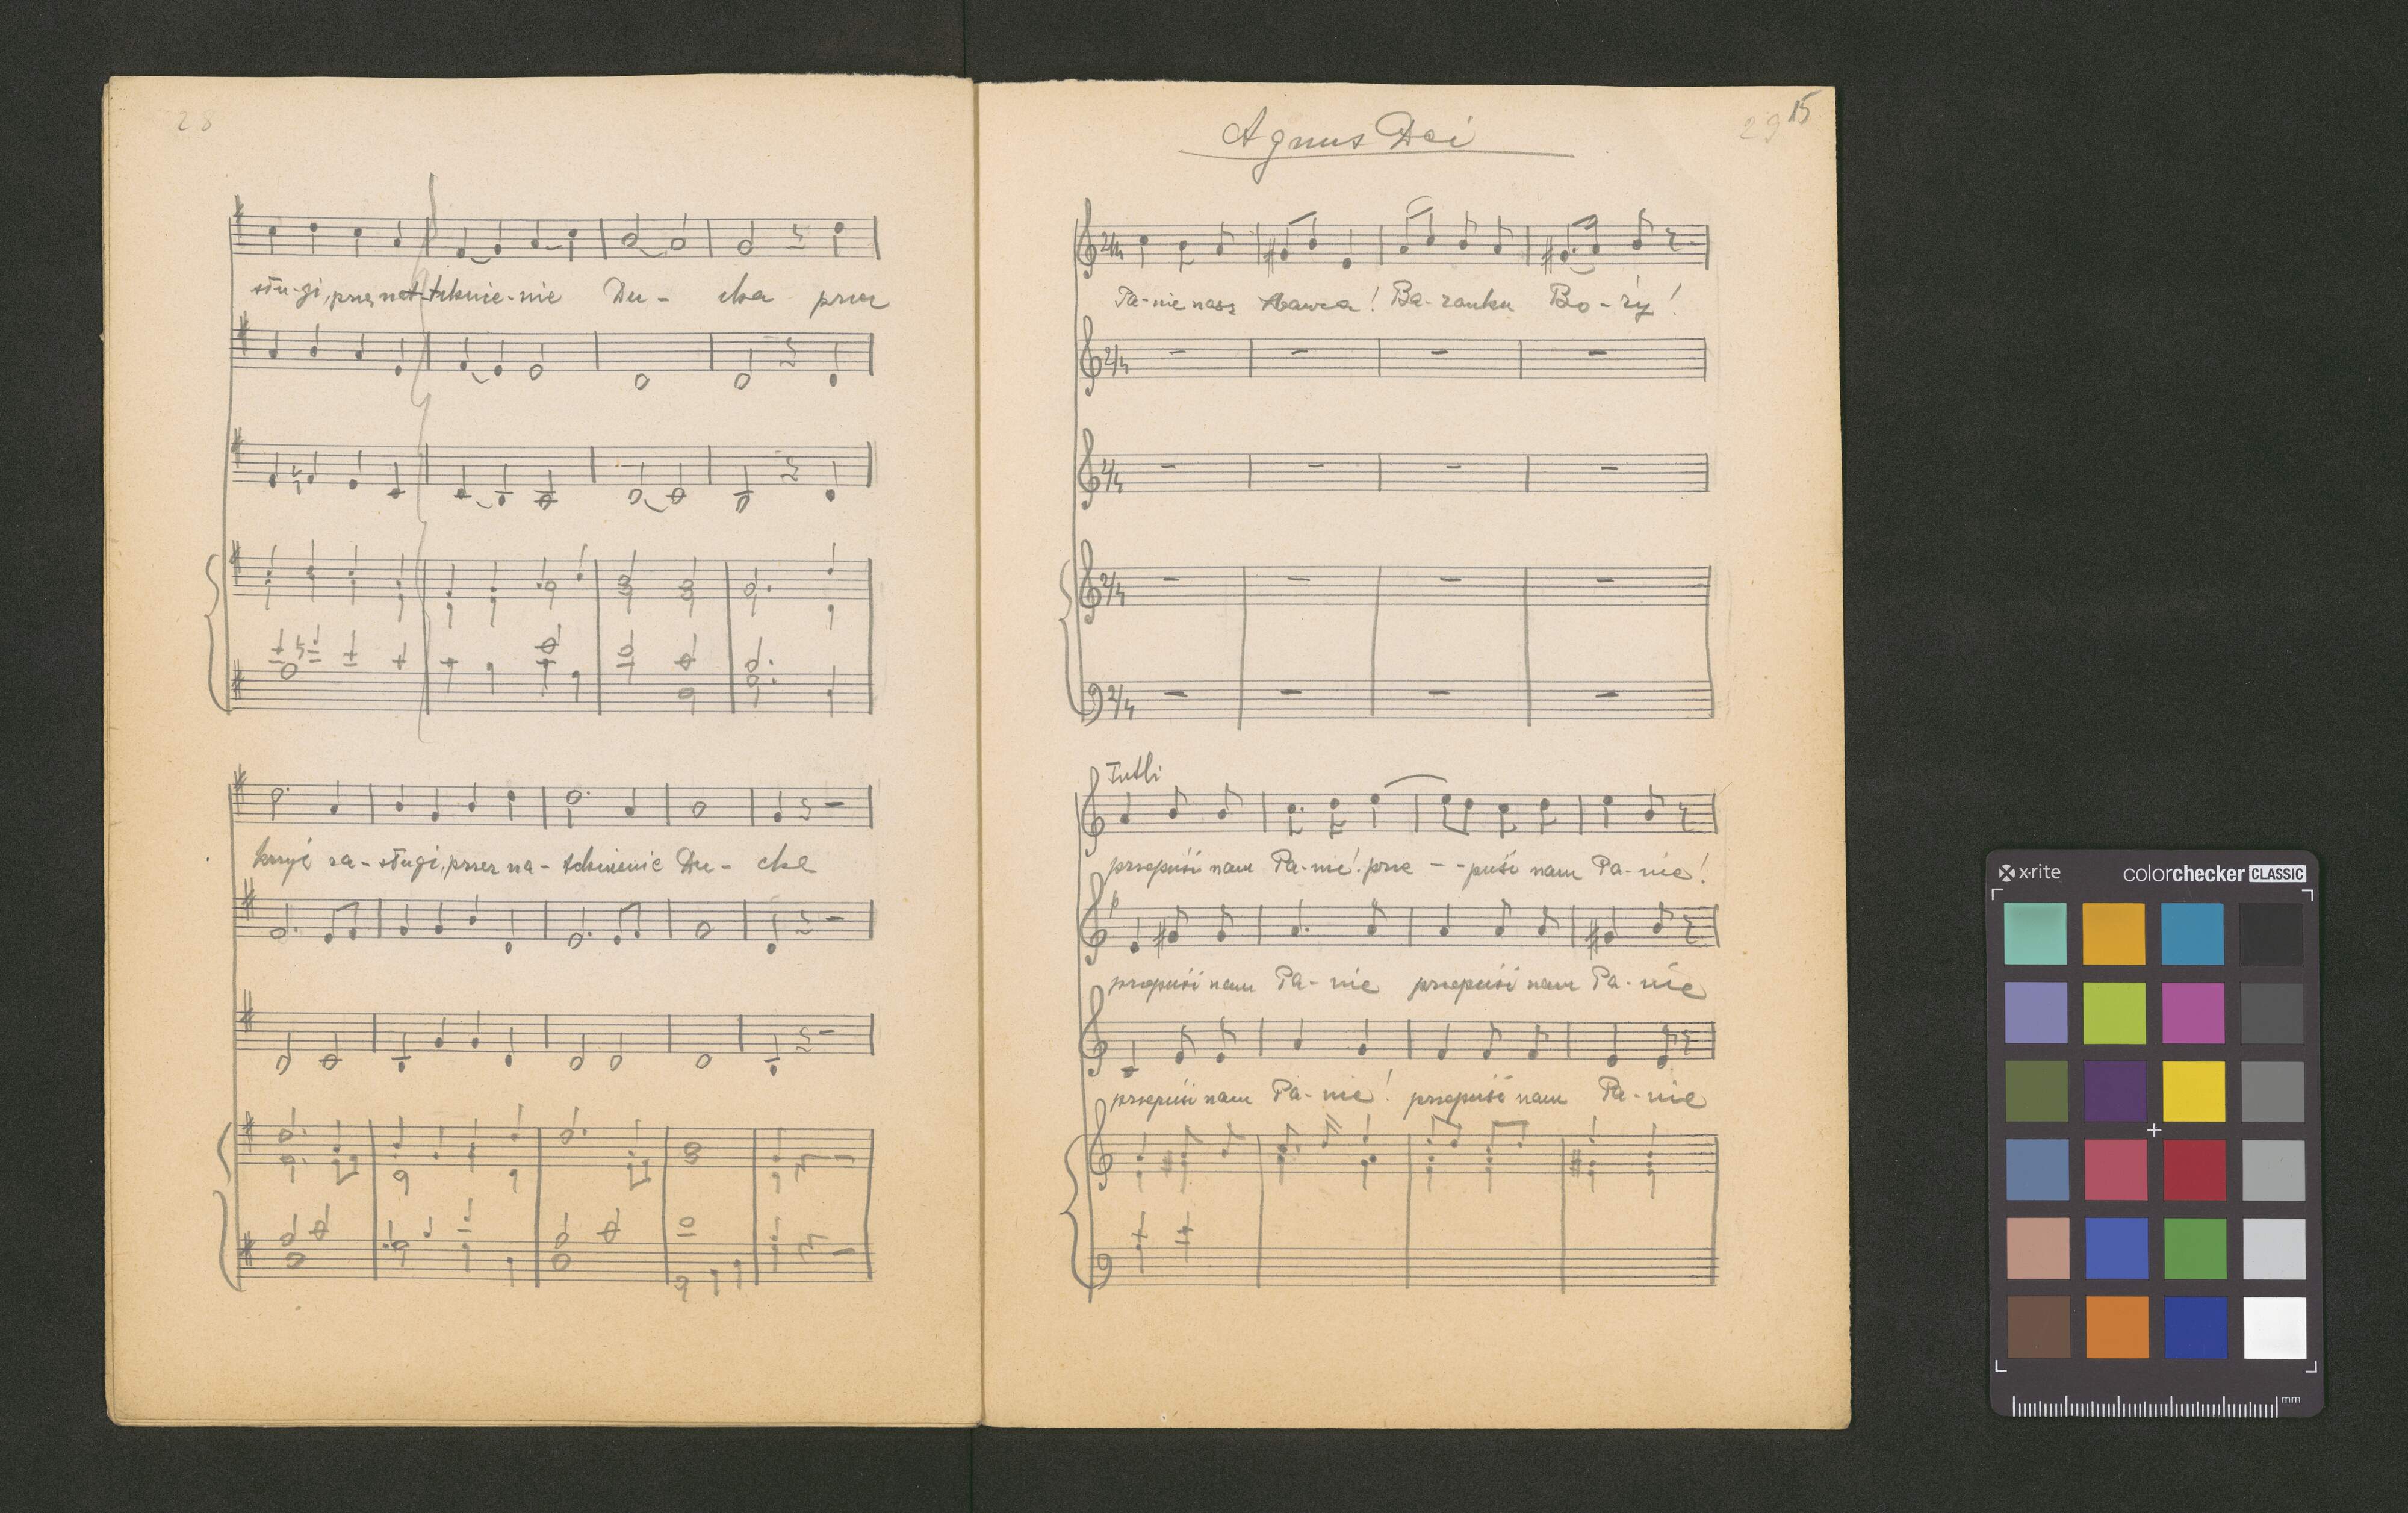 28
słu-gi, przez na-tchnie-nie Du- cha przez
krzyż za-sługi, przez na-tchnienie Du- cha
29 15
Agnus Dei
2/4
Pa-nie nasz Zbawca! Ba-ranku Bo-ży!
2/4
2/4
2/4
2/4
Tutti
przepuść nam Pa-nie! prze - -puść nam Pa-nie!
przepuść nam Pa-nie przepuść nam Pa-nie
przepuść nam Pa-nie! przepuść nam Pa-nie
x·rite colorchecker CLASSIC
mm